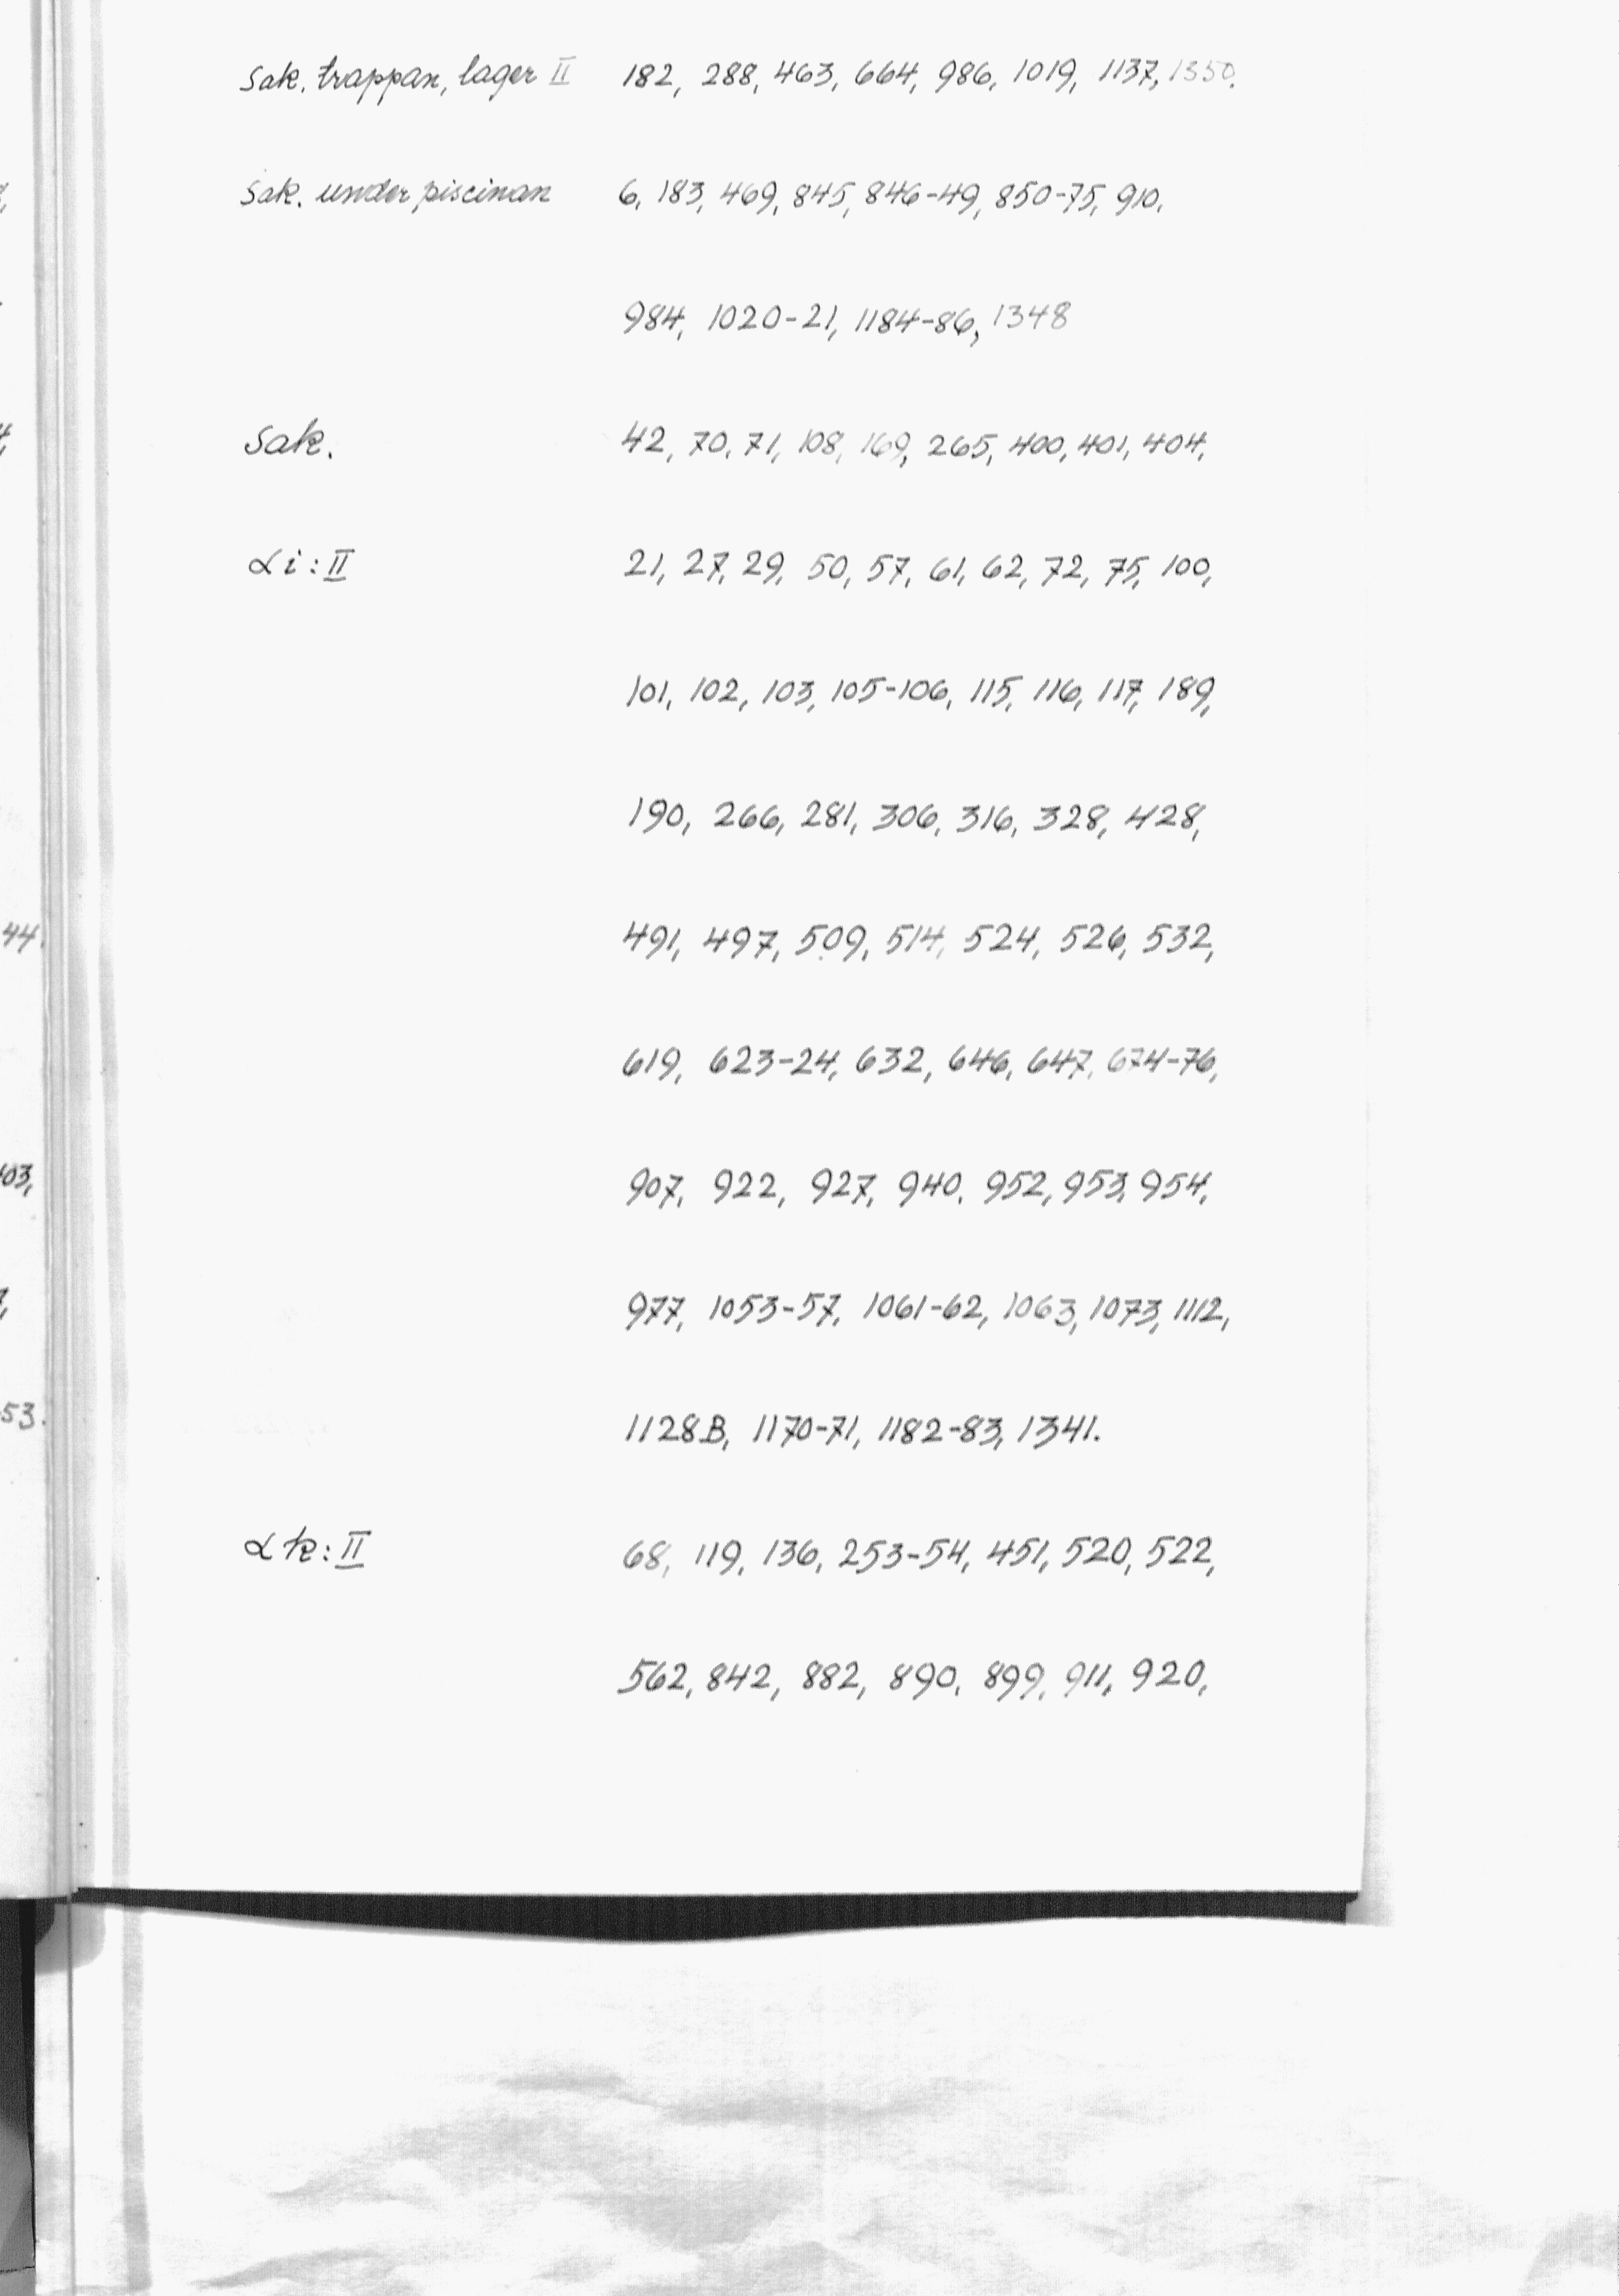 Sak. trappan, lager II 182, 288, 463, 664, 986, 1019, 1137, 1350.
Sak. under piscinan 6, 183, 469, 845, 846-49, 850-75, 910,
984, 1020-21, 1184-86, 1348
Sak. 42, 70, 71, 108, 169, 265, 400, 401, 404,
αi: II 21, 27, 29, 50, 57, 61, 62, 72, 75, 100,
101, 102, 103, 105-106, 115, 116, 117, 189,
190, 266, 281, 306, 316, 328, 428,
491, 497, 509, 514, 524, 526, 532,
44.
619, 623-24, 632, 646, 647, 674-76,
907, 922, 927, 940, 952, 953, 954,
03,
977, 1053-57, 1061-62, 1063, 1073, 1112,
53.
1128B, 1170-71, 1182-83, 1341.
αk: II 68, 119, 136, 253-54, 451, 520, 522,
562, 842, 882, 890, 899, 911, 920,